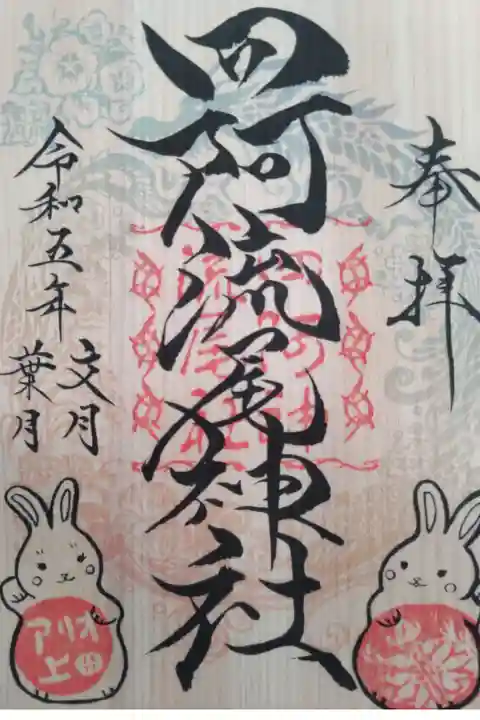 奉拝
流尾神社
令和五年
文月
葉月
アリオ
上田